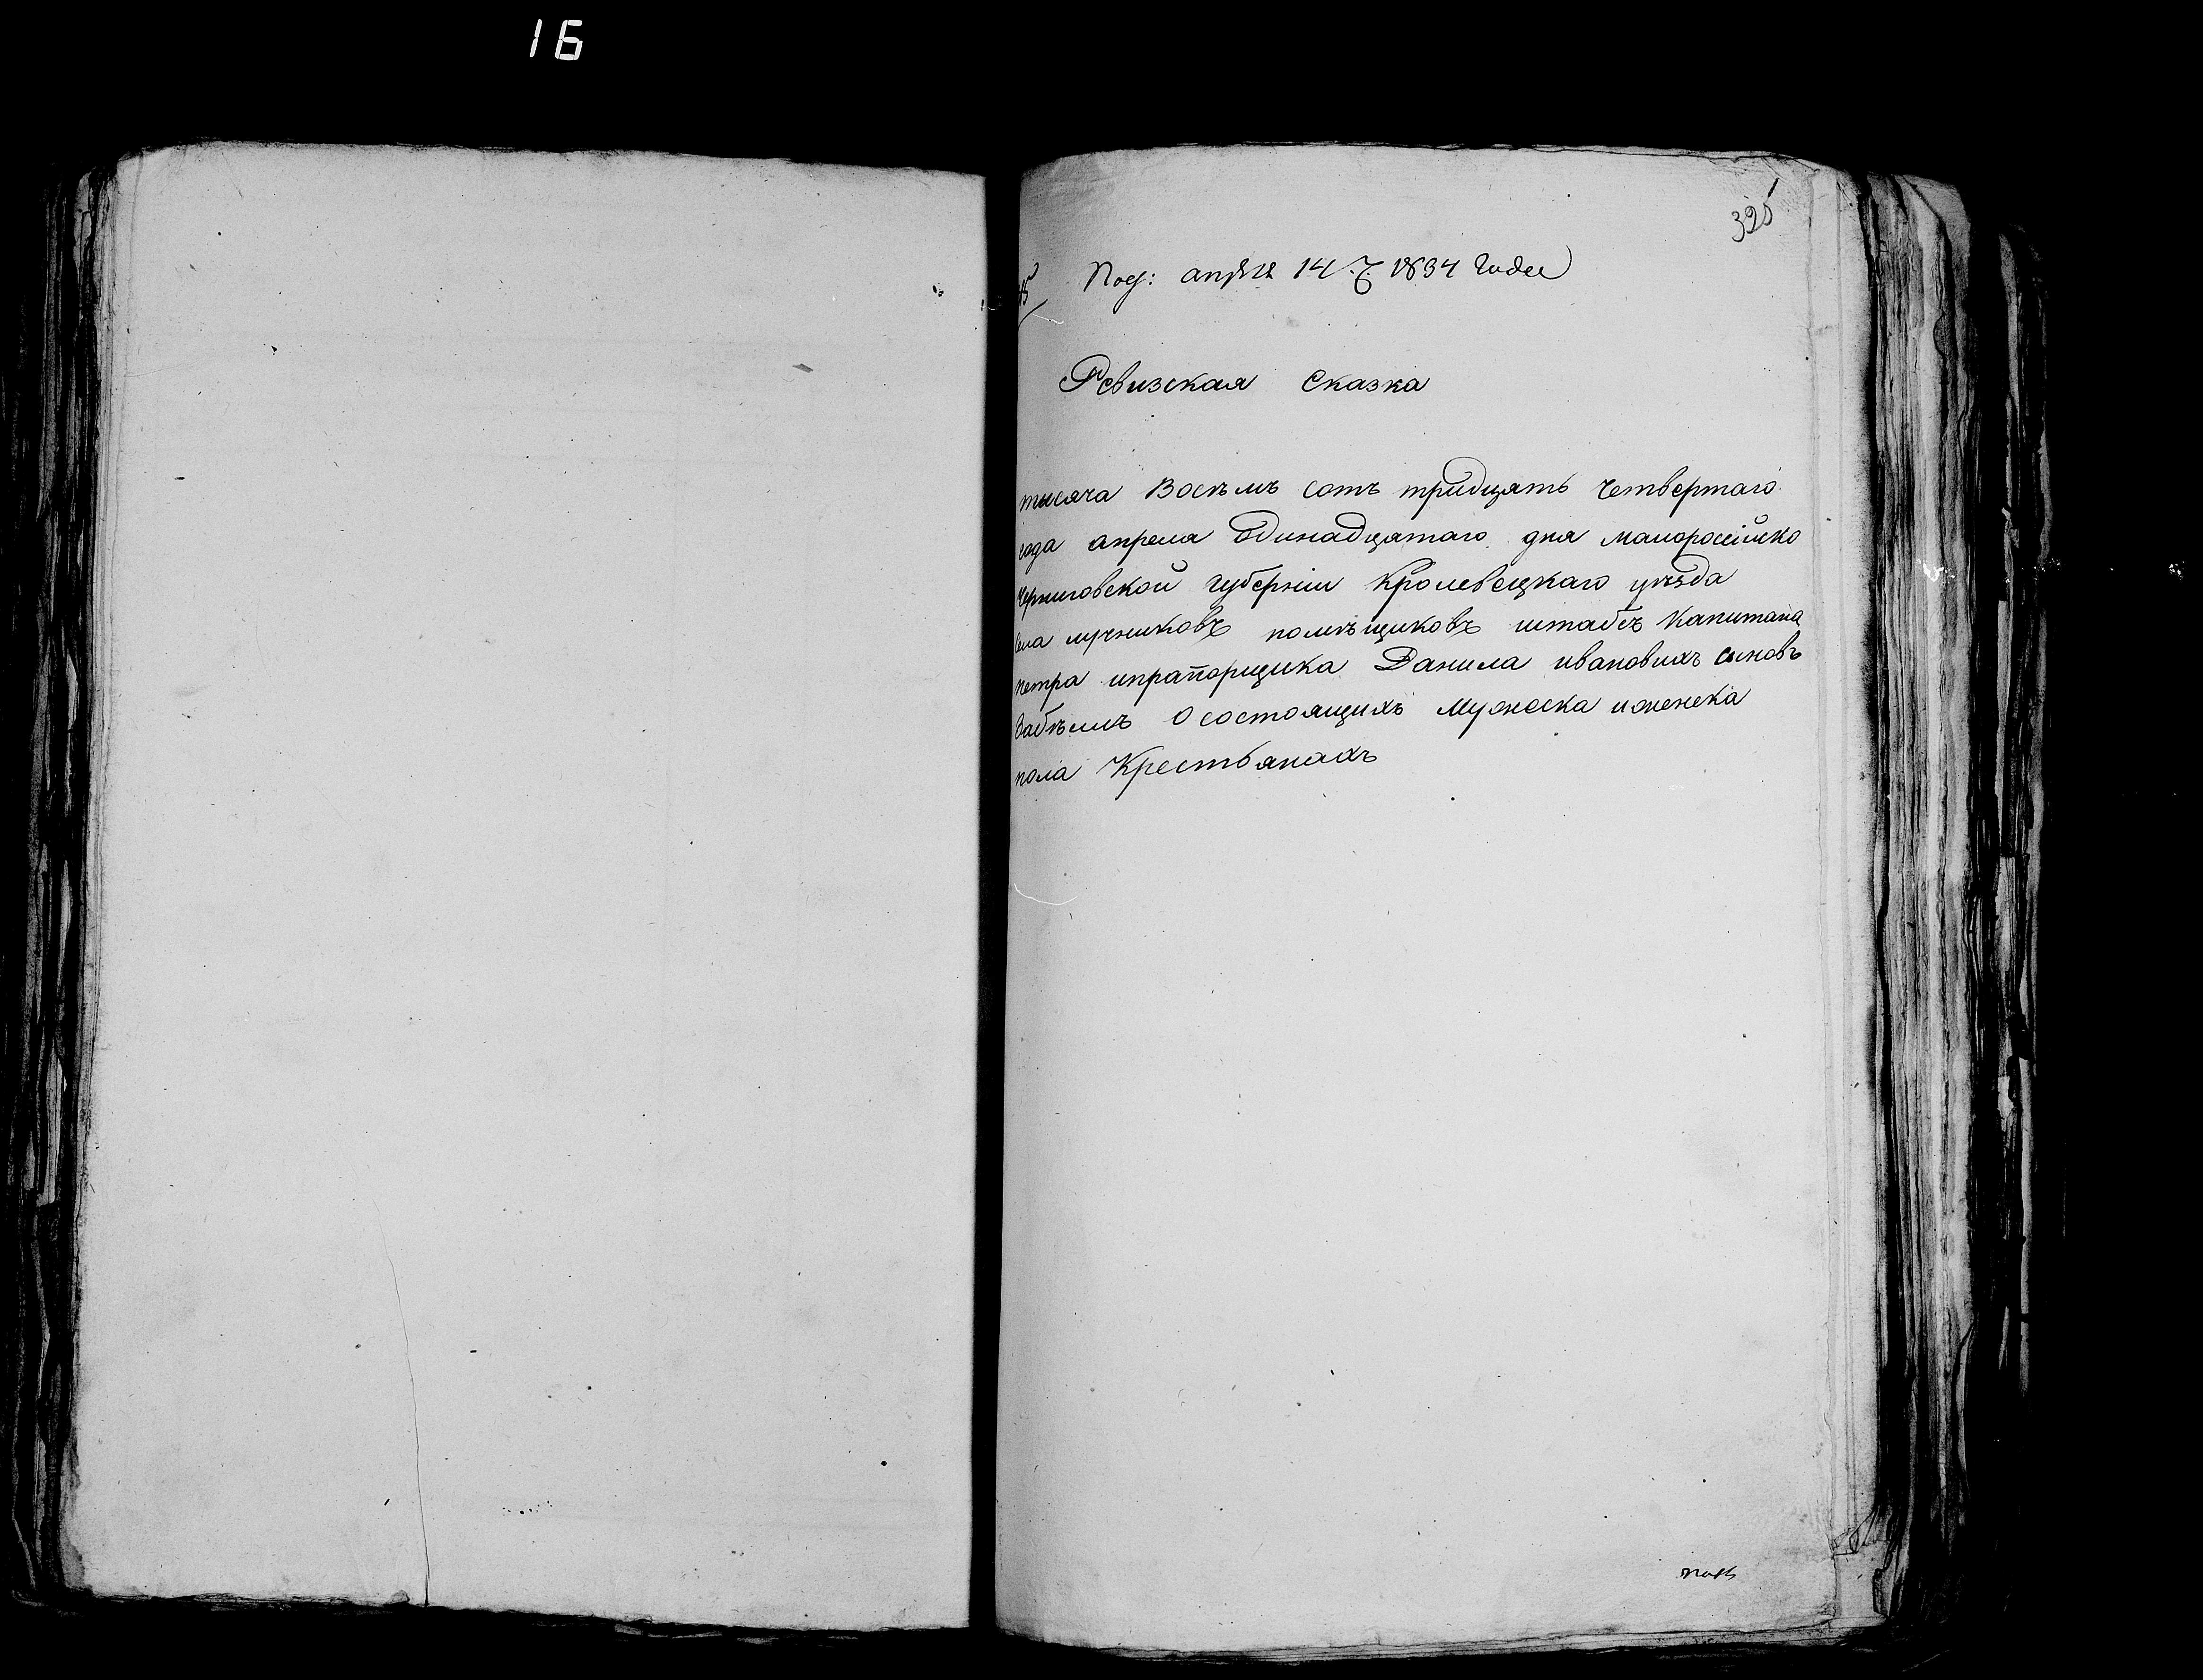 16
325
Под: апреля 14 1834 года
Ревизская Сказка
тысяча Восемъ сотъ тридцять четвертаго
года апреля Одинадцятаго дня малоросiйско
Черниговской губернiи Кролевецкаго уезда
села лучниковъ помѣщиковъ штабсъ Капитана
петра ипрапорщика Данила ивановихъ синовъ
Забѣлъ Осостоящихъ Мужеска иженска
пола Крестьянахъ